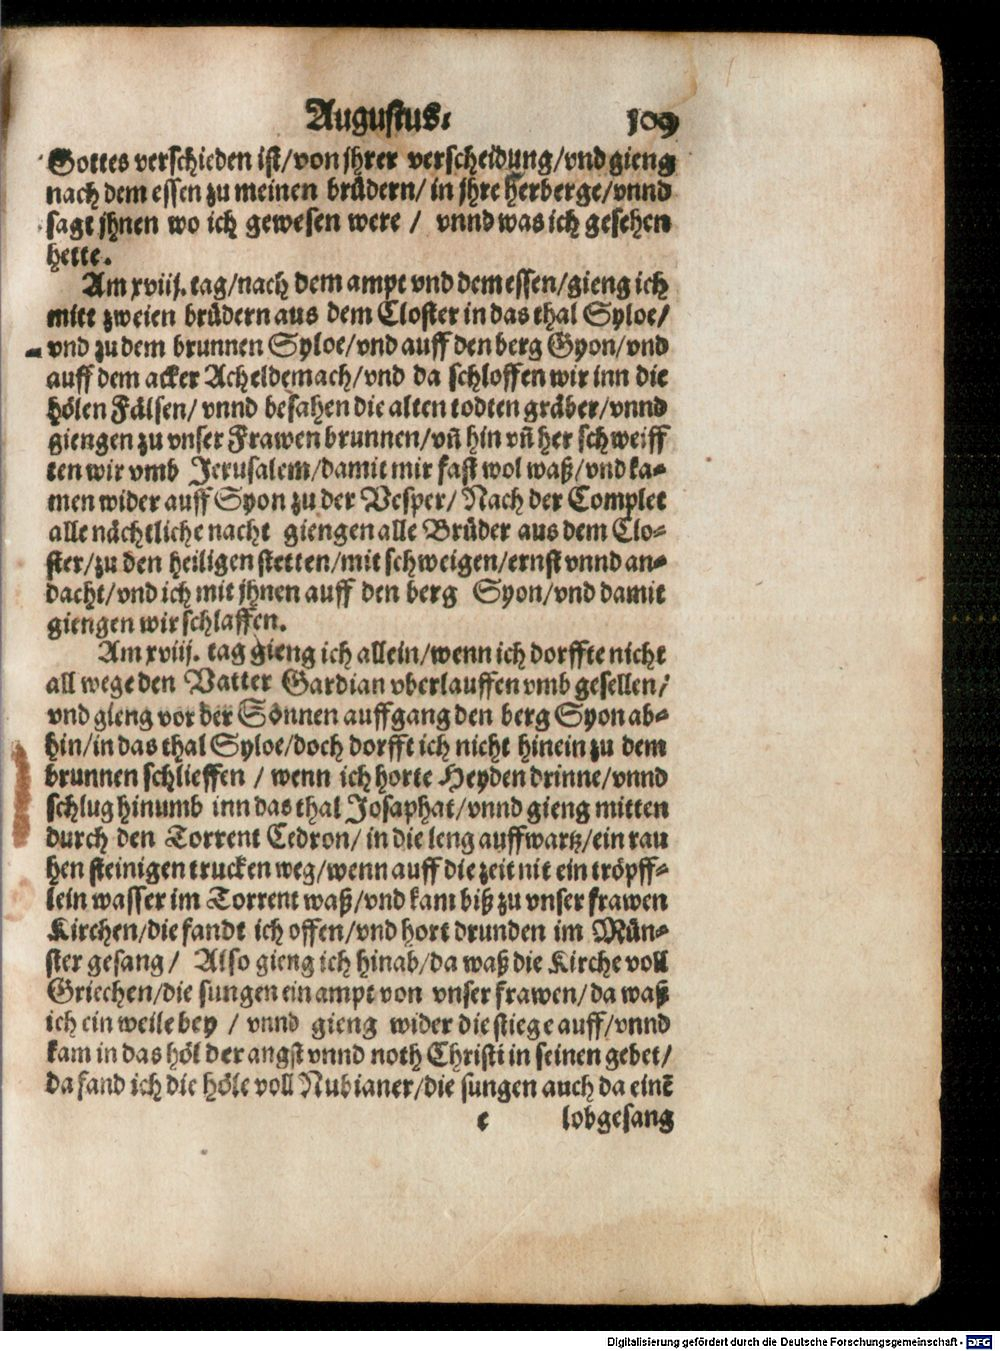 Augustus. 109
Gottes verschieden ist/von jhrer verscheidung/vnd gieng
nach dem essen zu meinen brüdern/ in jhre herberge/vnnd
sagt jhnen wo ich gewesen were / vnnd was ich gesehen
hette.
Am xvij. tag/nach dem ampt vnd dem essen/gieng ich
mitt zweien brüdern aus dem Closter in das thal Syloe/
vnd zu dem brunnen Syloe/vnd auff den berg Gyon/vnd
auff dem acker Acheldemach/vnd da schloffen wir inn die
hölen Fälsen/ vnnd besahen die alten todten gräber/vnnd
giengen zu vnser Frawen brunnen/vñ hin vñ her schweiff
ten wir vmb Jerusalem/damit mir fast wol waß/vnd ka-
men wider auff Syon zu der Vesper/ Nach der Complet
alle nächtliche nacht giengen alle Brüder aus dem Clo-
ster/zu den heiligen stetten/mit schweigen/ernst vnnd an-
dacht/vnd ich mit jhnen auff den berg Syon/vnd damit
giengen wir schlaffen.
Am xviij. tag gieng ich allein/wenn ich dorffte nicht
all wege den Vatter Gardian vberlauffen vmb gesellen/
vnd gieng vor der Sonnen auffgang den berg Syon ab-
hin/in das thal Syloe/doch dorfft ich nicht hinein zu dem
brunnen schlieffen / wenn ich horte Heyden drinne/vnnd
schlug hinumb inn das thal Josaphat/vnnd gieng mitten
durch den Torrent Cedron/ in die leng auffwartz/ein rau
hen steinigen trucken weg/wenn auff die zeit nit ein tröpff-
lein wasser im Torrent waß/vnd kam biß zu vnser frawen
Kirchen/die fandt ich offen/vnd hort drunden im Mün-
ster gesang/ Also gieng ich hinab/da waß die Kirche voll
Griechen/die sungen ein ampt von vnser frawen/da waß
ich ein weile bey / vnnd gieng wider die stiege auff/vnnd
kam in das höl der angst vnnd noth Christi in seinen gebet/
da fand ich die höle voll Nubianer/die sungen auch da einē
e lobgesang
Digitalisierung gefördert durch die Deutsche Forschungsgemeinschaft - DFG